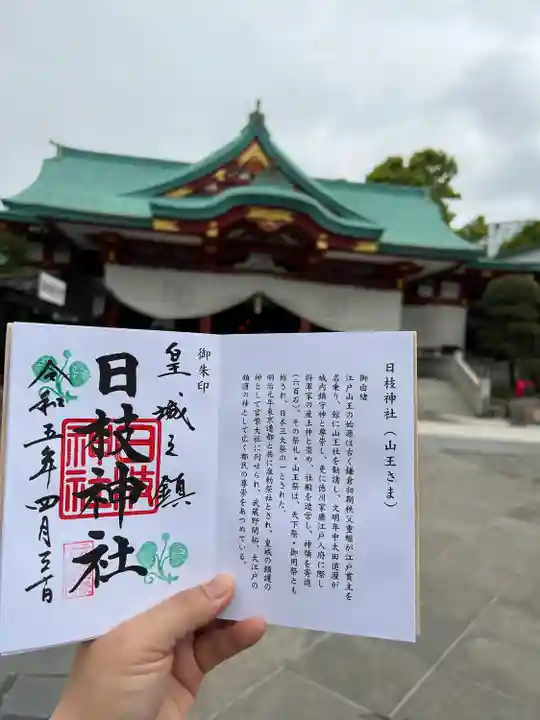 日枝神社(山王さま)
御由緒
江戸山王の始源は古く鎌倉初期秩父重継が江戸貫主を
名乗り、館に山王社を勧請し、文明年中太田道灌が
城内鎮守神と尊崇し、更に徳川家康江戸入府に際し
将軍家の産土神と崇め、社殿を造営し、神領を寄進
(六百石)、その祭礼・山王祭は、天下祭・御用祭とも
称され、日本三大祭の一とされた。
明治元年東京遷都と共に准勅祭社とされ、皇城の鎮護の
神として官幣大社に列せられ、武蔵野開拓、大江戸の
鎮護の神として広く都民の尊崇をあつめている。
御朱印
皇城之鎮
日枝神社
日枝
神社
令和五年四月三十日